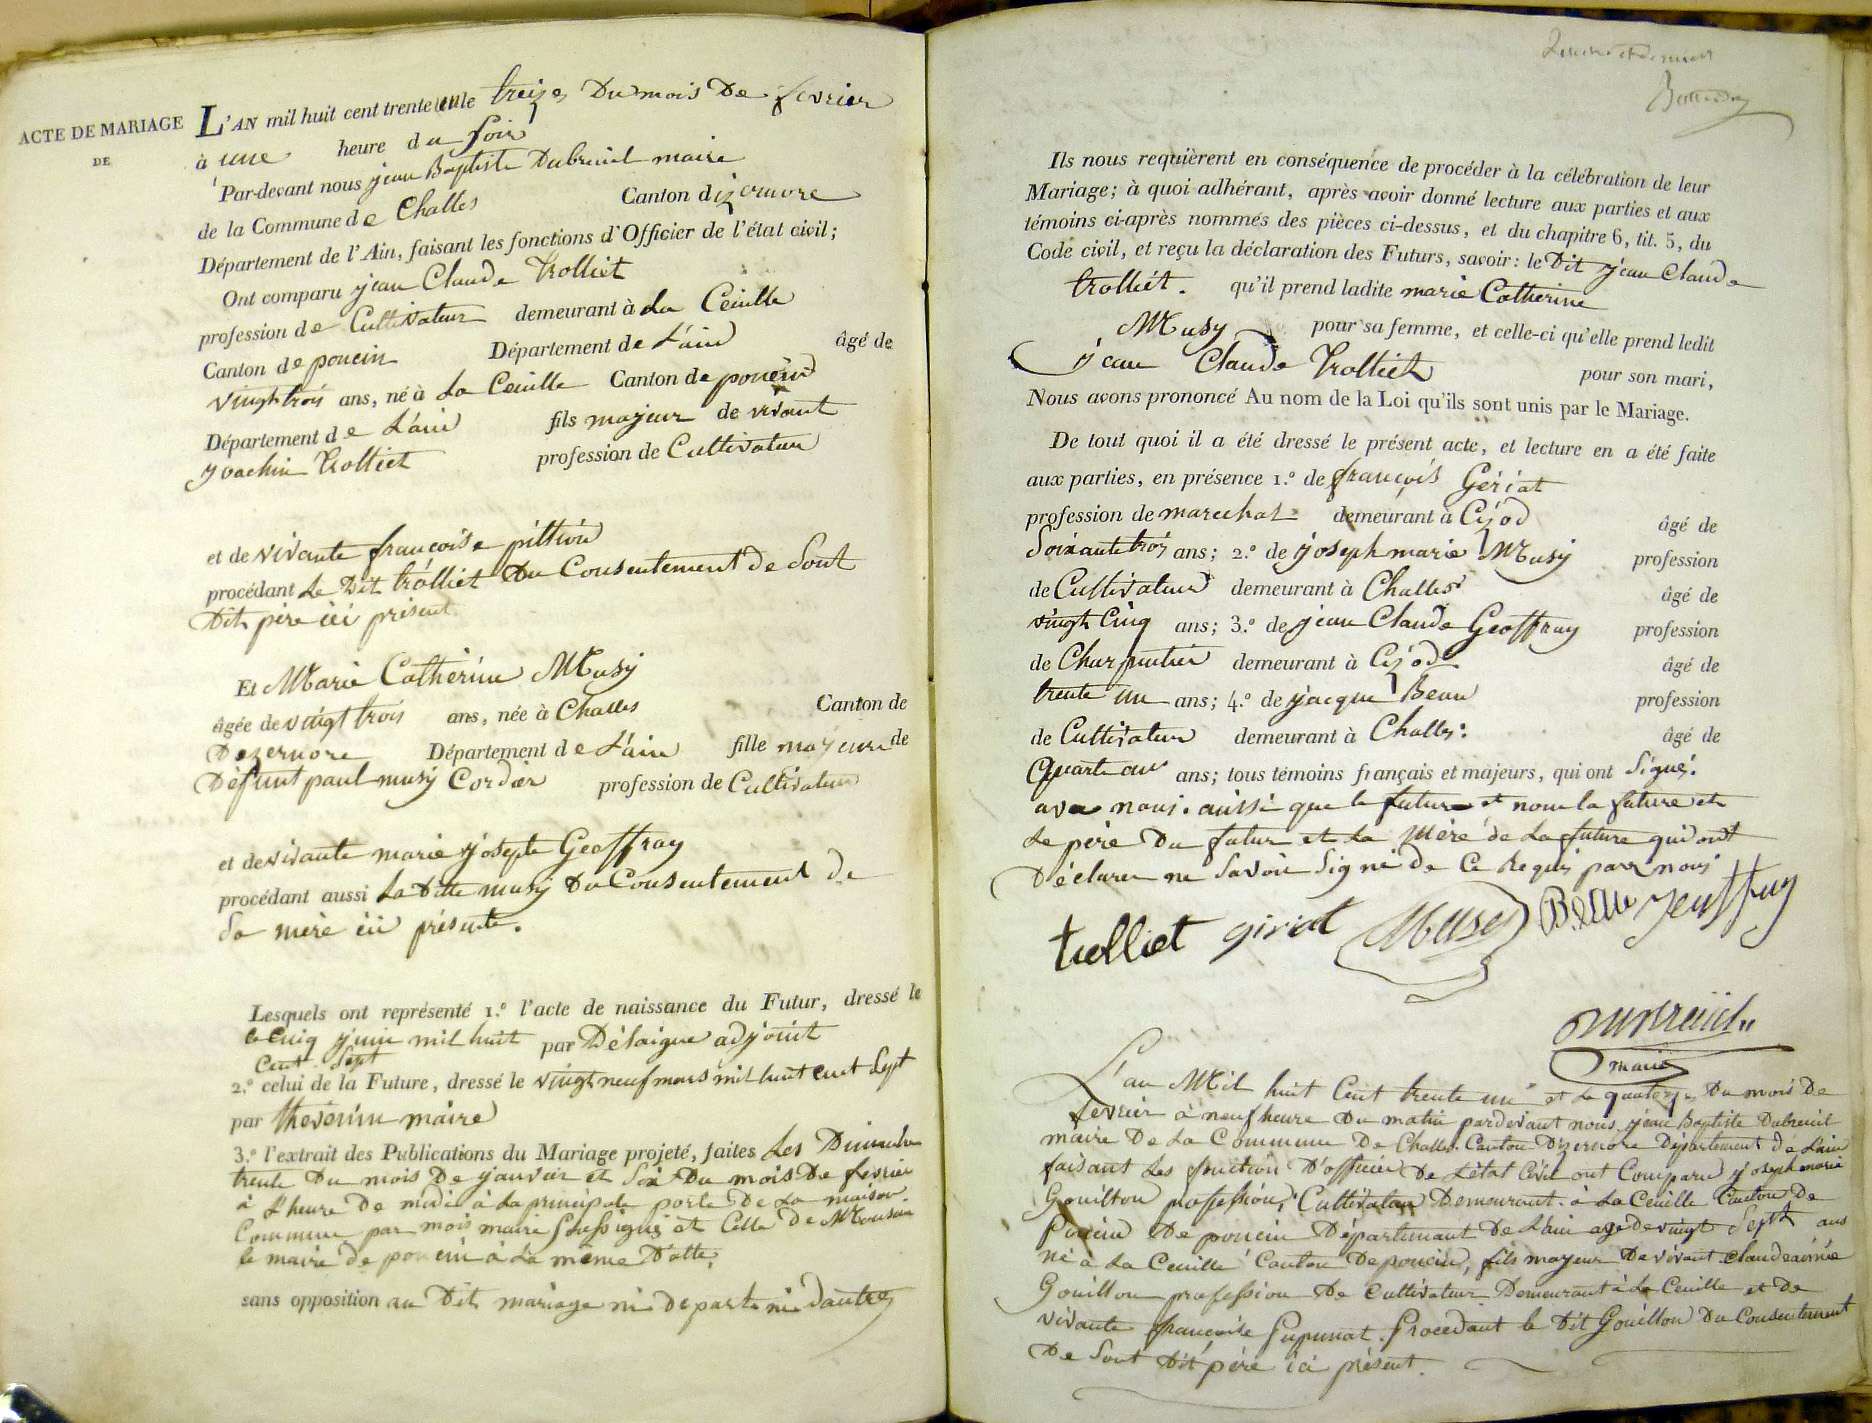 ACTE DE MARIAGE
DE
L'AN mil huit cent trente un le treize Du mois De fevrier
à une heure du soir
Par-devant nous jean Baptiste Dubreuil maire
de la Commune de Challes Canton dizernore
Département de l'Ain, faisant les fonctions d'Officier de l'état civil;
Ont comparu jean Claude Trolliet
profession de Cultivateur demeurant à La Ceuille
Canton de poncin Département de L'ain âgé de
vingt trois ans, né à La Ceuille Canton de poncin
Département de L'ain fils majeur de vivant
joachin Trolliet profession de Cultivateur
et de vivante francoise pittion
procédant Le Dit trolliet Du Consentement de Sont
Dit père ici présent
Et Marie Catherine Musy
âgée de vingt trois ans, née à Challes Canton de
Dezernore Département de L'ain fille majeure de
Défunt paul musy Cordier profession de Cultivateur
et de vivante marie josepte Geoffray
procédant aussi La Ditte musy Du Consentement de
Sa mère ici présente.
Lesquels ont représenté 1.° l'acte de naissance du Futur, dressé le
le Cinq juin mil huit par Délaigue adjoint
Cent Sept
2.° celui de la Future, dressé le vingt neuf mars mil huit cent Sept
par thévenin maire
3.° l'extrait des Publications du Mariage projeté, faites Les Dimanche
trente Du mois De janvier et Six Du mois De fevrier
à L'heure De midi à La principale porte De La maison
Commune par mois maire Soussigné et Celle De Monsieur
le maire de poncin à La même Datte,
sans opposition au Dit mariage ni De part ni dautre
Ils nous requièrent en conséquence de procéder à la célébration de leur
Mariage; à quoi adhérant, après avoir donné lecture aux parties et aux
témoins ci-après nommés des pièces ci-dessus, et du chapitre 6, tit. 5, du
Code civil, et reçu la déclaration des Futurs, savoir: le Dit jean Claude
trolliet. qu'il prend ladite marie Catherine
Musy pour sa femme, et celle-ci qu'elle prend ledit
jean Claude Trolliet pour son mari,
Nous avons prononcé Au nom de la Loi qu'ils sont unis par le Mariage.
De tout quoi il a été dressé le présent acte, et lecture en a été faite
aux parties, en présence 1.° de françois Gériat
profession de marechat demeurant à Cizod âgé de
Soixante trois ans; 2.° de joseph marie Musy profession
de Cultivateur demeurant à Challes âgé de
vingt Cinq ans; 3.° de jean Claude Geoffray profession
de Charpentier demeurant à Cizod âgé de
trente un ans; 4.° de jacque Beau profession
de Cultivateur demeurant à Challes: âgé de
Quarte ans; tous témoins français et majeurs, qui ont Signé.
avec nous. aussi que le futur et nom la future et
Le père Du futur et La Mère de La future qui ont
Déclarer ne Savoir Signé de Ce Requis parr nous
trolliet giriat Musy Beau jeuffray
Dubreuil
maire
L'an Mil huit Cent trente un et Le quatorze Du mois De
fevrier à neuf heure Du matin pardevant nous jean Baptiste Dubreuil
maire De La Commune De Challes Canton Dizernore Département De L'ain
faisant Les fonction D'officier De L'état Civil ont Comparu joseph marie
Gouillon profession, Cultivateur Demeurant à La Ceuille Canton De
De poncin Département De L'ain age de vingt Sept ans
né à La Ceuille Canton De poncin, fils majeur De vivant claude aimé
Gouillon profession De Cultivateur Demeurant à La Ceuille et De
vivante francoise Pupunat. Procédant le Dit Gouillon Du Consentement
De Sont Dit père ici présent.